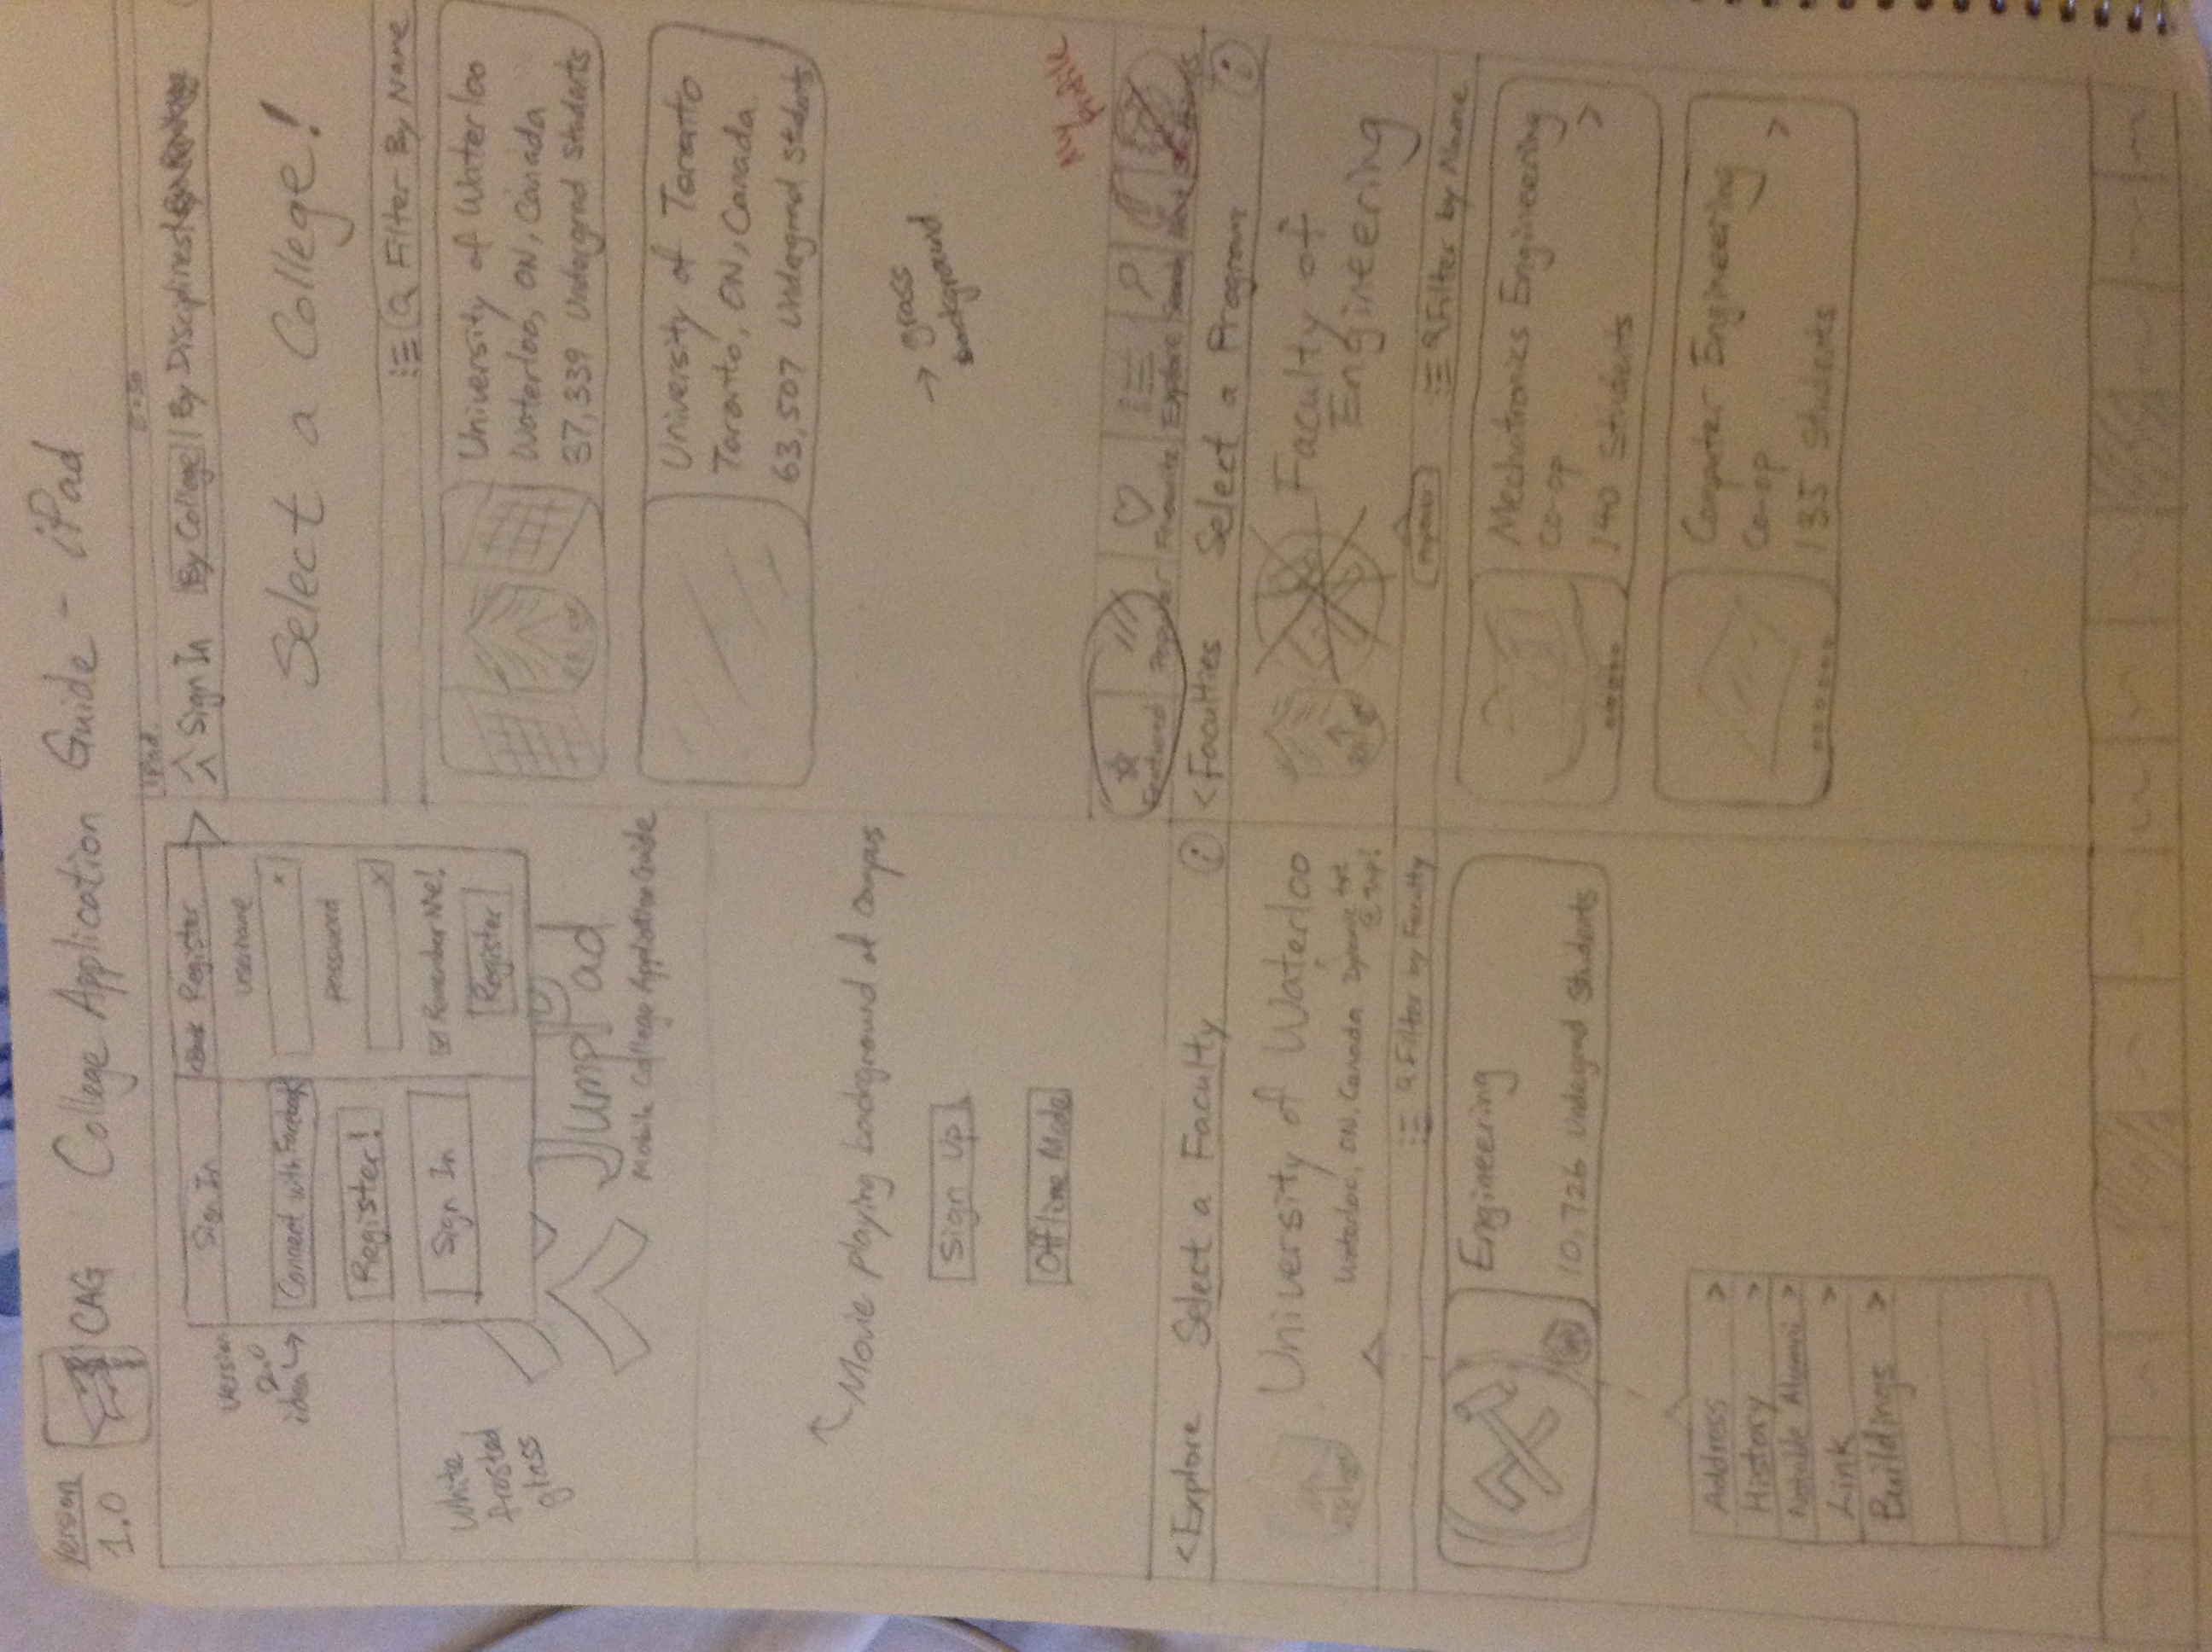 Version
1.0
CAG
College Application Guide - iPad
Version
2.0
idea
Sign In
Connect with Facebook
Register!
Sign In
<Back Register
Username
x
Password
x
Remember Me!
Register
White
frosted
glass
JumpPad
Mobile College Application Guide
Movie playing background of campus
Sign Up
Offline Mode
iPad
Sign In By College | By Disciplines |
Select a College!
Filter By Name
University of Waterloo
Waterloo, ON, Canada
37,339 Undergrad Students
University of Toronto
Toronto, ON, Canada
63,507 Undergrad Students
→ grass
background
My
Profile
Featured Popular Favourite Explore Search
<Explore Select a Faculty i
University of Waterloo
Waterloo, ON, Canada
Filter by Faculty
Engineering
10,726 Undergrad Students
Address >
History >
Notable Alumni >
Link >
Buildings >
<Faculties Select a Program i
Faculty of
Engineering
Filter by Name
Mechatronics Engineering
Co-op
140 Students
>
Computer Engineering
Co-op
135 Students
>